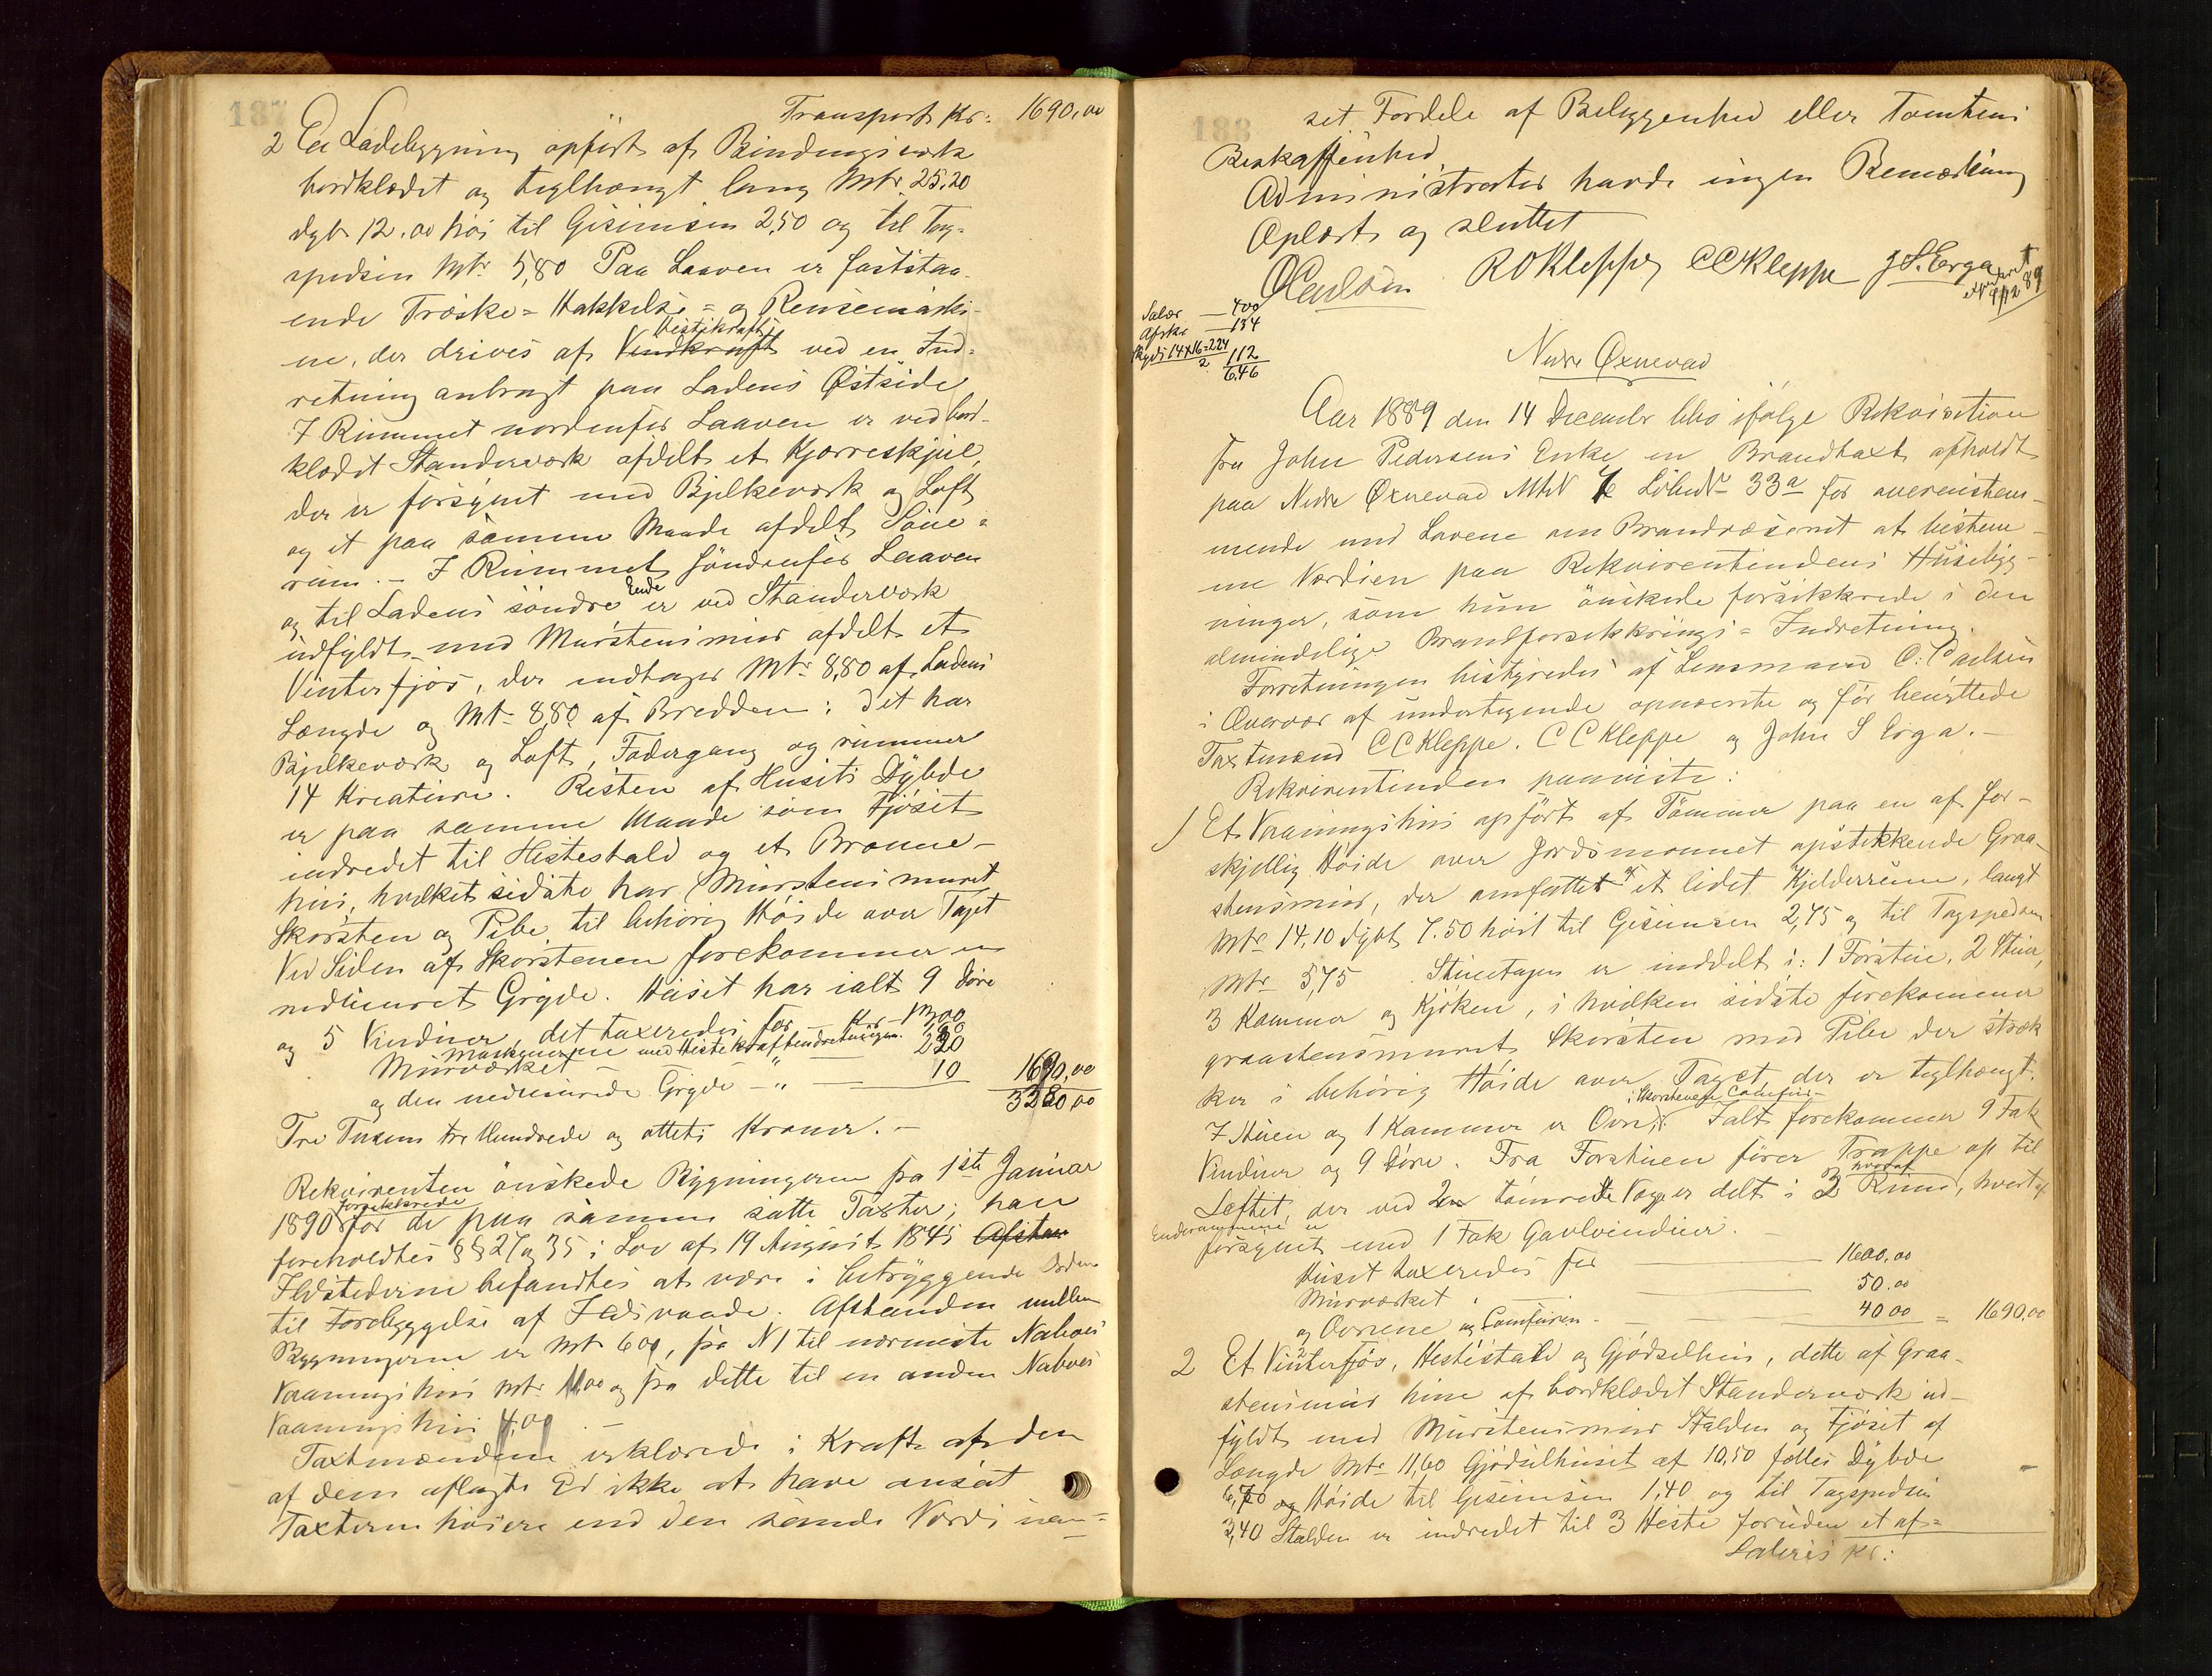 187
Transport Kr: 1690,00
2 En Ladebygning opført af Bindingsværk
bordklædt og teglhængt lang Mtr 25,20
dyb 12.00 høi til Gesimsen 2,50 og til Tag-
spidsen Mtr 5,80 Paa Laaven er faststaa-
ende Træske- Hakkelse- og Rensemaski-
Hestekraft
ne, der drives af Vindkraft ved en Ind-
retning anbragt paa Ladens Østside
I Rummet nordenfor Laaven er ved bord-
klædt Standerværk afdelt et Kjærreskjul,
der er forsynet med Bjelkeværk og Loft
og et paa samme Maade afdelt
rum. - I Rummet søndenfor Laaven
Ende
og til Ladens søndre er ved Standerværk
udfyldt med Murstensmur afdelt et
Vinterfjøs, der indtager Mtr 8,80 af Ladens
Længde og Mtr 8,80 af Bredden; det har
Bjelkeværk og Loft, Fodergang og rummer
14 Kreature. Resten af Husets Dybde
er paa samme Maade som Fjøset
indredet til Hestestald og et Brænne-
hus, hvilket sidste har Murstensmuret
Skorsten og Pibe til behørig Høide over Taget
Ved Siden af Skorstenen forekommer en
nedmuret Gryde. Huset har ialt 9 Døre
og 5 Vinduer, det taxeredes for Kr
Maskinerne med Hestekraftindretningen
Murværket
og den nedmurede Gryde - " - 10 1690,00
3380,00
Tre Tusen tre Hundrede og otteti Kroner. -
Rekvirenten ønskede Bygningerne fra 1ste Januar
forsikkrede
1890 for de paa samme satte Taxter; han
foreholdtes §§ 27 og 35 i Lov af 19 August 1845 Afstan
Ildstederne befandtes at være i betryggende Orden
til Forebyggelse af Ildsvaade. Afstanden mellem
Bygningerne er Mtr 6 00, fra N 1 til nærmeste Naboes
Vaaningshus Mtr 11 00 og fra dette til en anden Naboes
Vaaningshus 4,00 -
Taxtmændene erklærede i Kraft af den
af dem aflagte Ed ikke at have ansat
Taxterne høiere end den sande Værdi uan-
188
set Fordele af Beliggenhed eller Tomtens
Beskaffenhed
Administrator havde ingen Bemærkning
Oplæst og sluttet
O Paulsen R O Kleppe C C Kleppe J S. Erga
9/12 89
Salær — 400
Afskr — 134
Skyds 14x16=224
2 112
6,46
Nedre Øxnevad
Aar 1889 den 14 December blev ifølge Rekvisition
fra John Pedersens Enke en Brandtaxt afholdt
paa Nedre Øxnevad MtrN 7 LøbeNr 33a for overenstem-
mende med Lovene om Brandvæsenet at bestem-
me Værdien paa Rekvirentindens Husebyg-
ninger, som hun ønskede forsikkrede i den
almindelige Brandforsikkrings- Indretning.
Forretningen bestyredes af Lensmand O. Paulsen
i Overvær af undertegnede opnævnte og før benyttede
Taxtmænd C C Kleppe. C C Kleppe og John S Erga. -
Rekvirentinden paaviste:
1 Et Vaaningshus opført af Tømmer paa en af for-
skjellig Høide over Jordsmonnet opstikkende Graa-
stensmur, der omfattet et lidet Kjelderrum, langt
Mtr 14,10 dybt 7.50 høit til Gesimsen 2,75 og til Tagspidsen
Mtr 5,75 Stueetagen er inddelt i: 1 Forstue, 2 Stuer,
3 Kammer og Kjøken, i hvilken sidste forekommer
graastensmuret Skorsten med Pibe der stræk
ker i behørig Høide over Taget der er teglhængt.
i Skorstenen Comfuir -
I Stuen og 1 Kammer er Ovne. Ialt forekommer 9 Fak
Vinduer og 9 Døre. Fra Forstuen fører Trappe op til
hvoraf
Loftet, der ved 2 tømrede Vægge er delt i 3 Rum, hvert af
Enderummene er
forsynet med 1 Fak Gavlvinduer. -
Huset taxeredes for — 1600,00
Murværket — 50.00
og Ovnene og Comfuiren — 40 00 = 1690,00
2 Et Vinterfjøs, Hestestald og Gjødselhus, dette af Graa-
stensmur hine af bordklædt Standerværk ud-
fyldt med Murstensmur Stalden og Fjøset af
Længde Mtr 11,60 Gjødselhuset af 10,50 fælles Dybde
6,70 og Høide til Gesimsen 1,40 og til Tagspidsen
3,40 Stalden er indredet til 3 Heste foruden et af-
Lateris Kr: